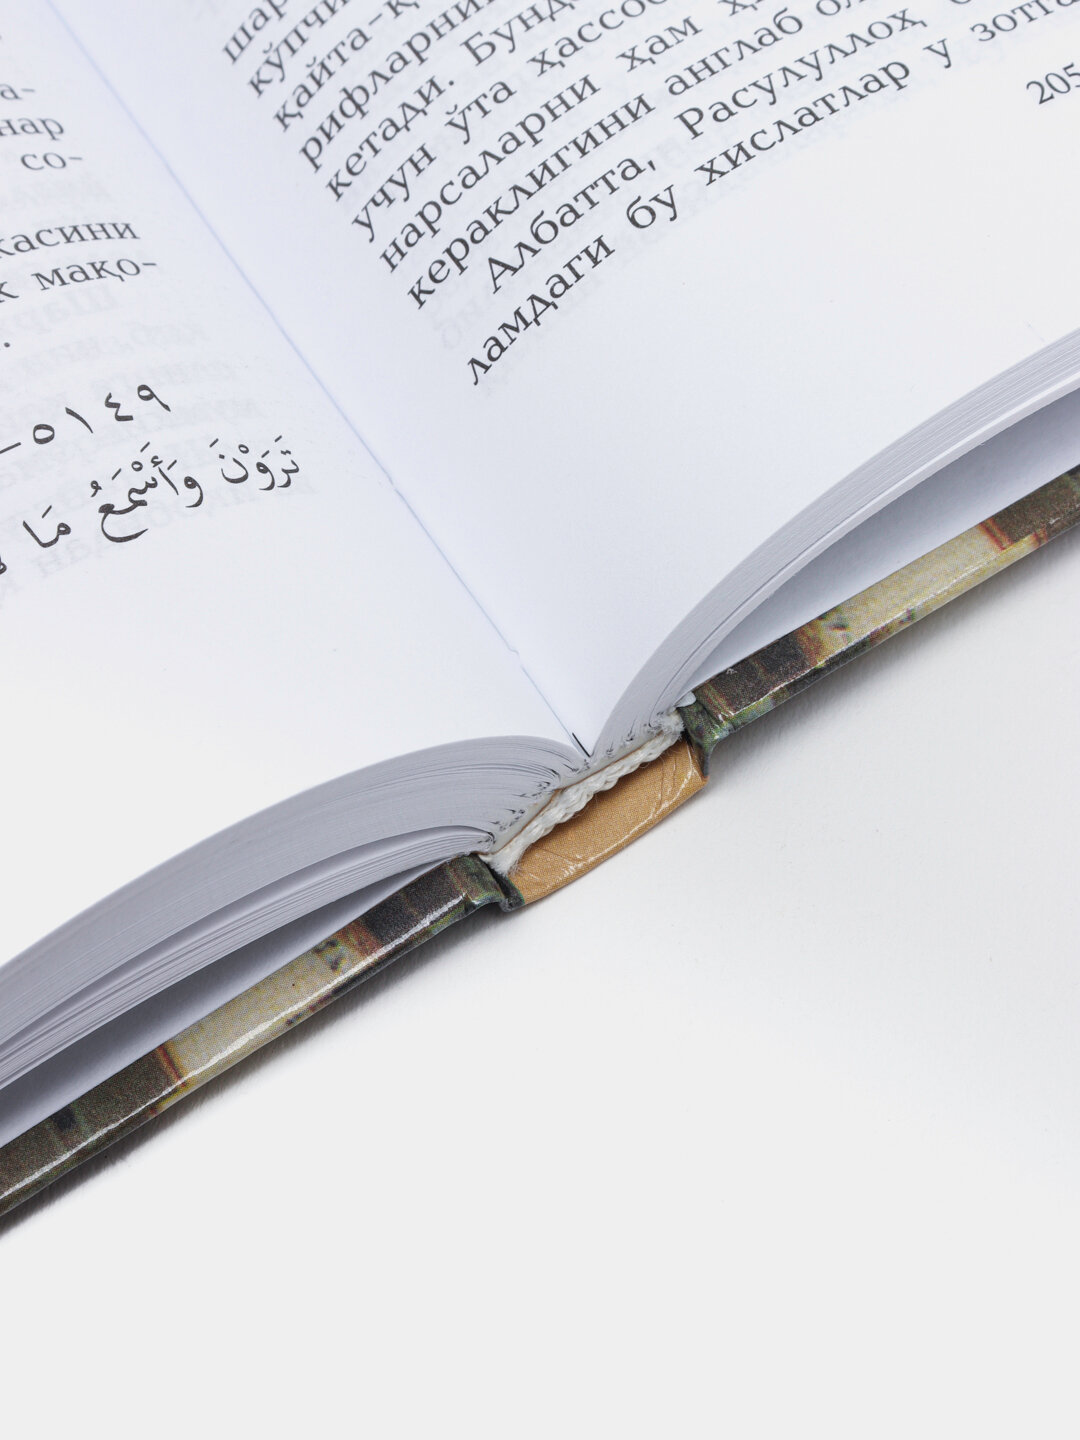 нар
со-
касини
к мақо-
٥١٤٩
تَرَوْنَ وَأَسْمَعُ مَا
шар
кўпчи
қайта-қ
рифларни
кетади. Бунд
учун ўта ҳассос
нарсаларни ҳам
кераклигини англаб ол
Албатта, Расулуллоҳ
ламдаги бу хислатлар у зотга
205